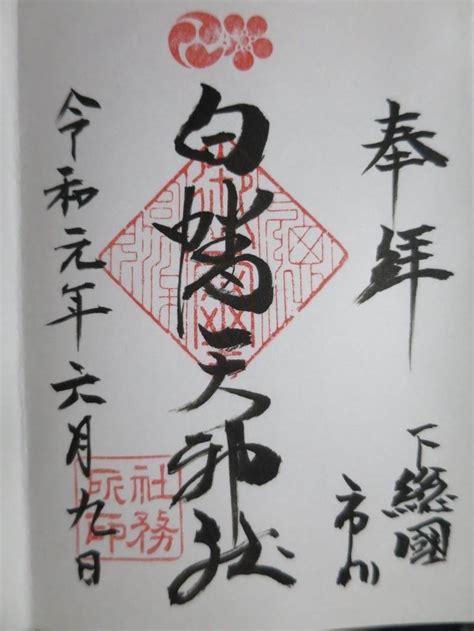 奉拝
下総國
市川
白幡天神社
令和元年六月九日
社務
所印